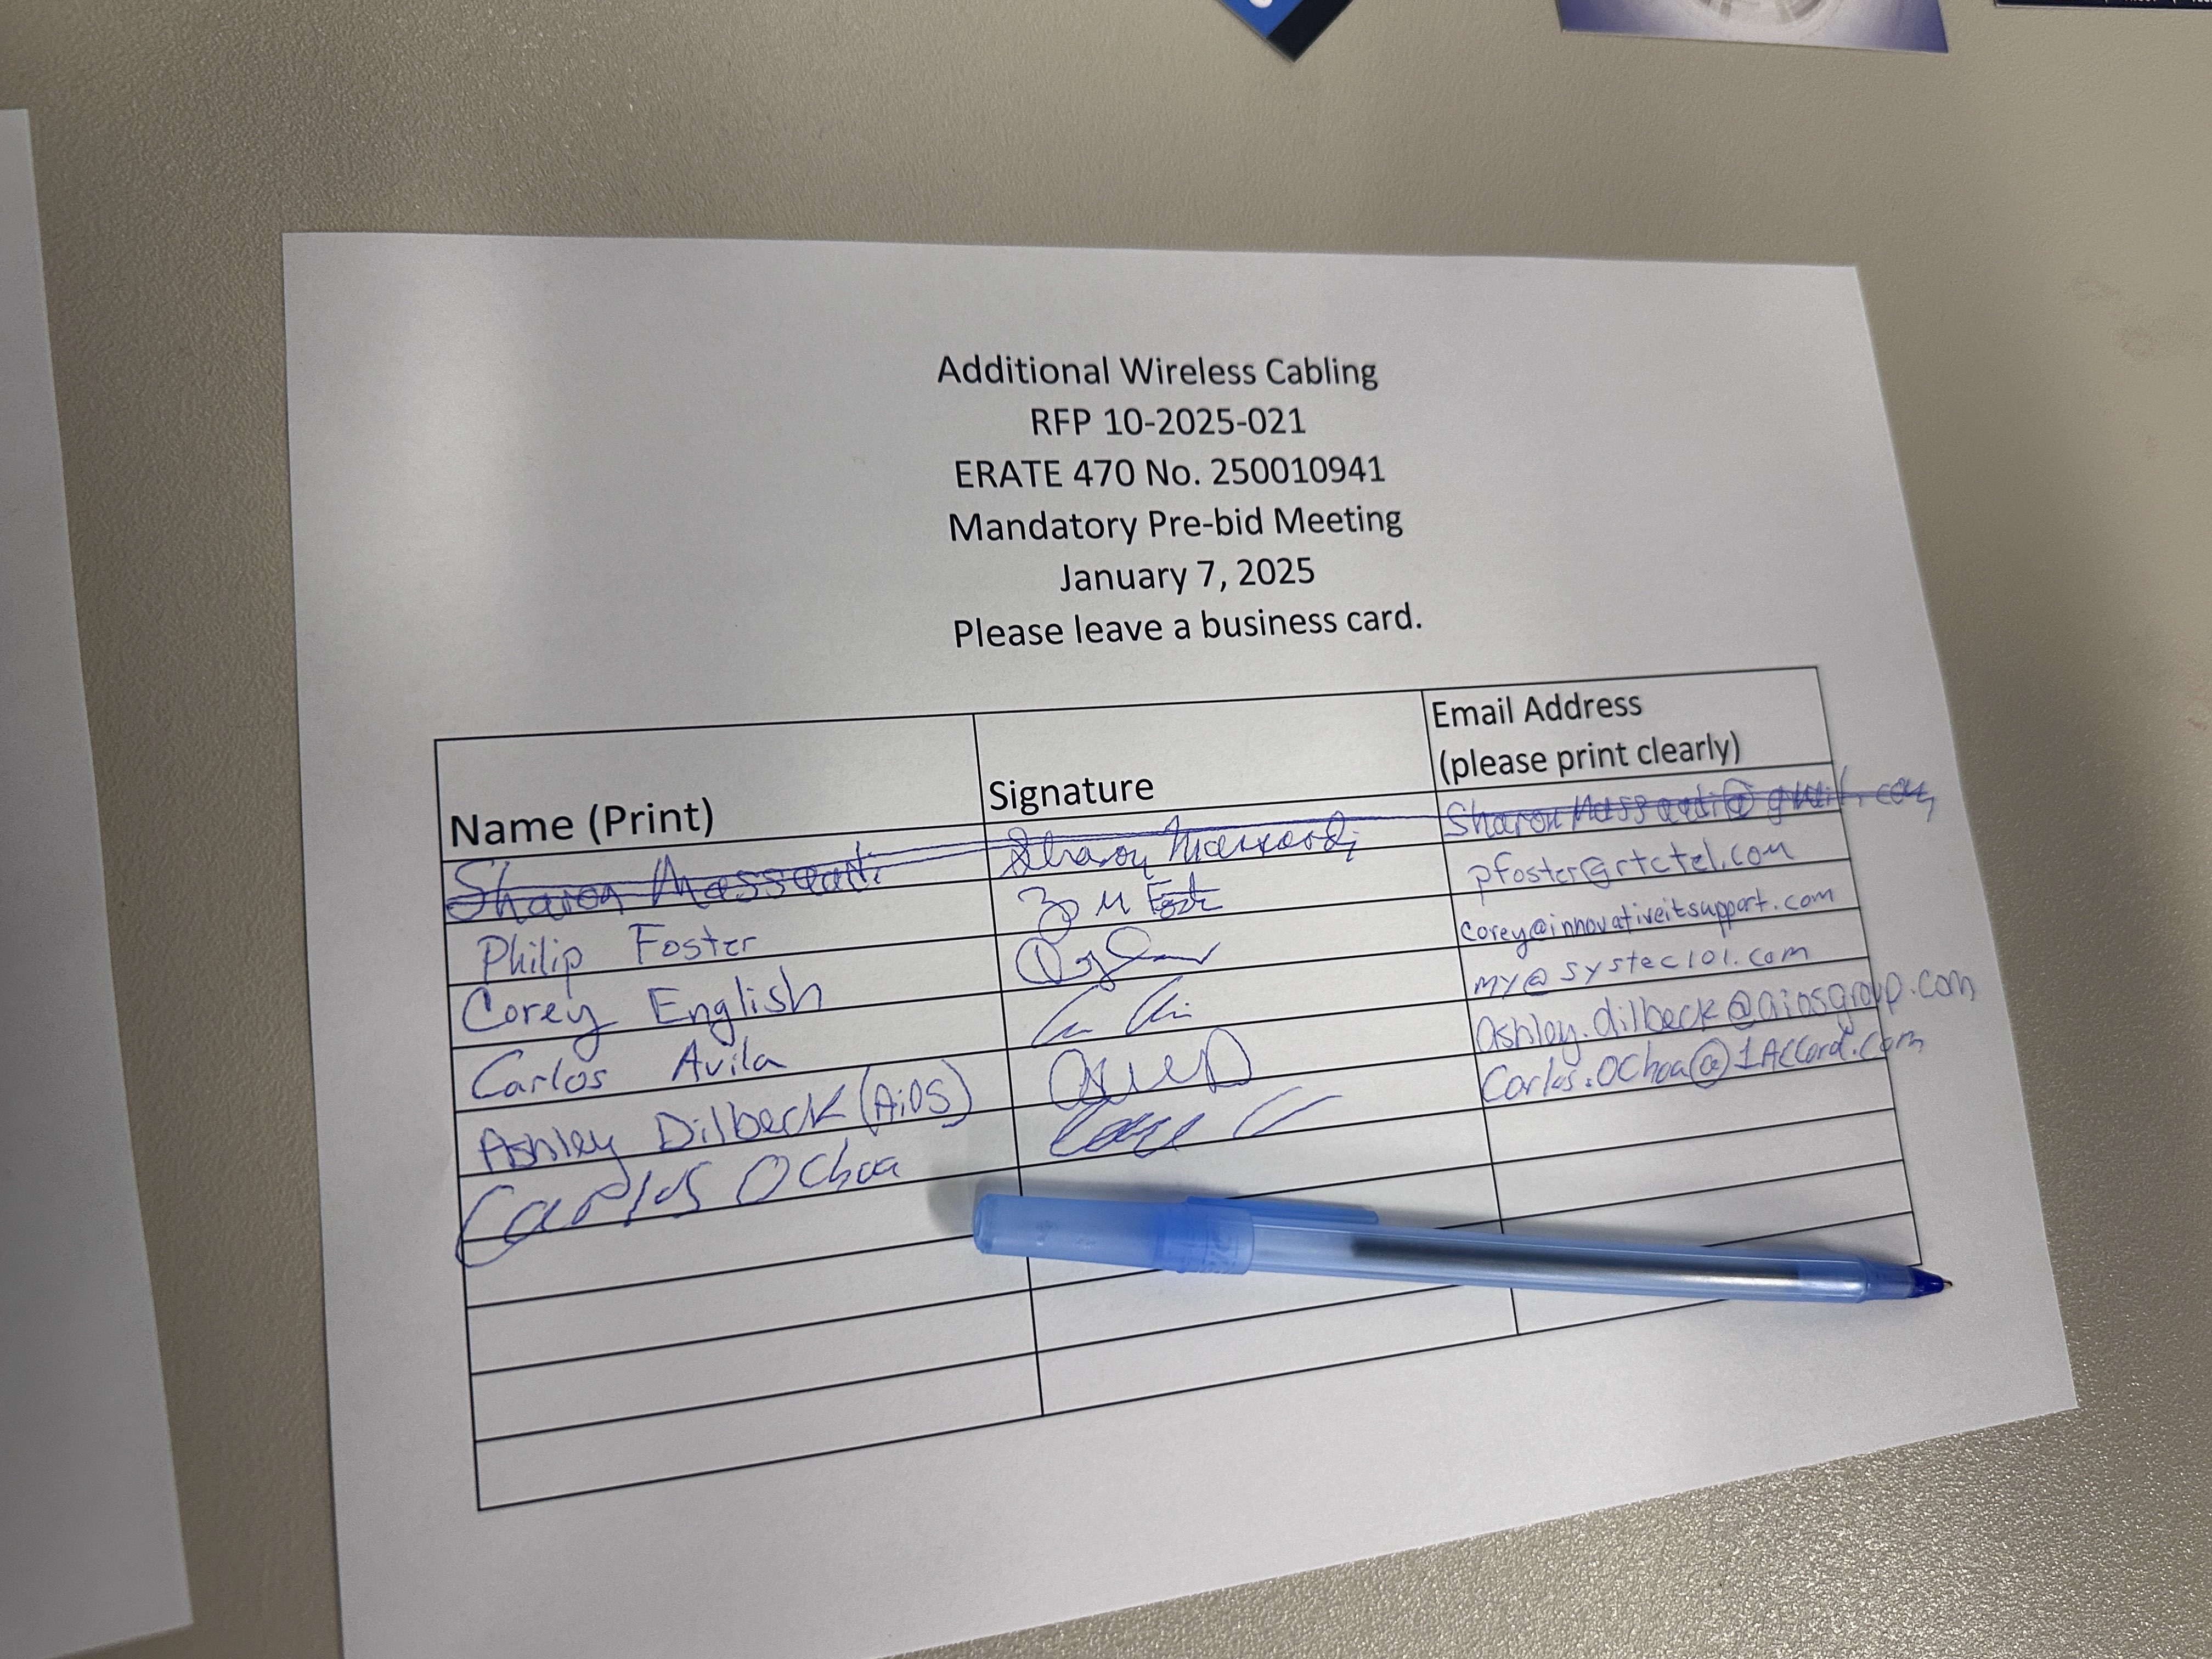 Additional Wireless Cabling
RFP 10-2025-021
ERATE 470 No. 250010941
Mandatory Pre-bid Meeting
January 7, 2025
Please leave a business card.
Name (Print) Signature Email Address
(please print clearly)
Sharon
Philip Foster pfoster@rtctel.com
Corey English corey@innovativeitsupport.com
Carlos Avila my@systec101.com
Ashley Dilbeck (AiOS) Ashley.dilbeck@aiosgroup.com
Carlos Ochoa Carlos.Ochoa@1Accord.com